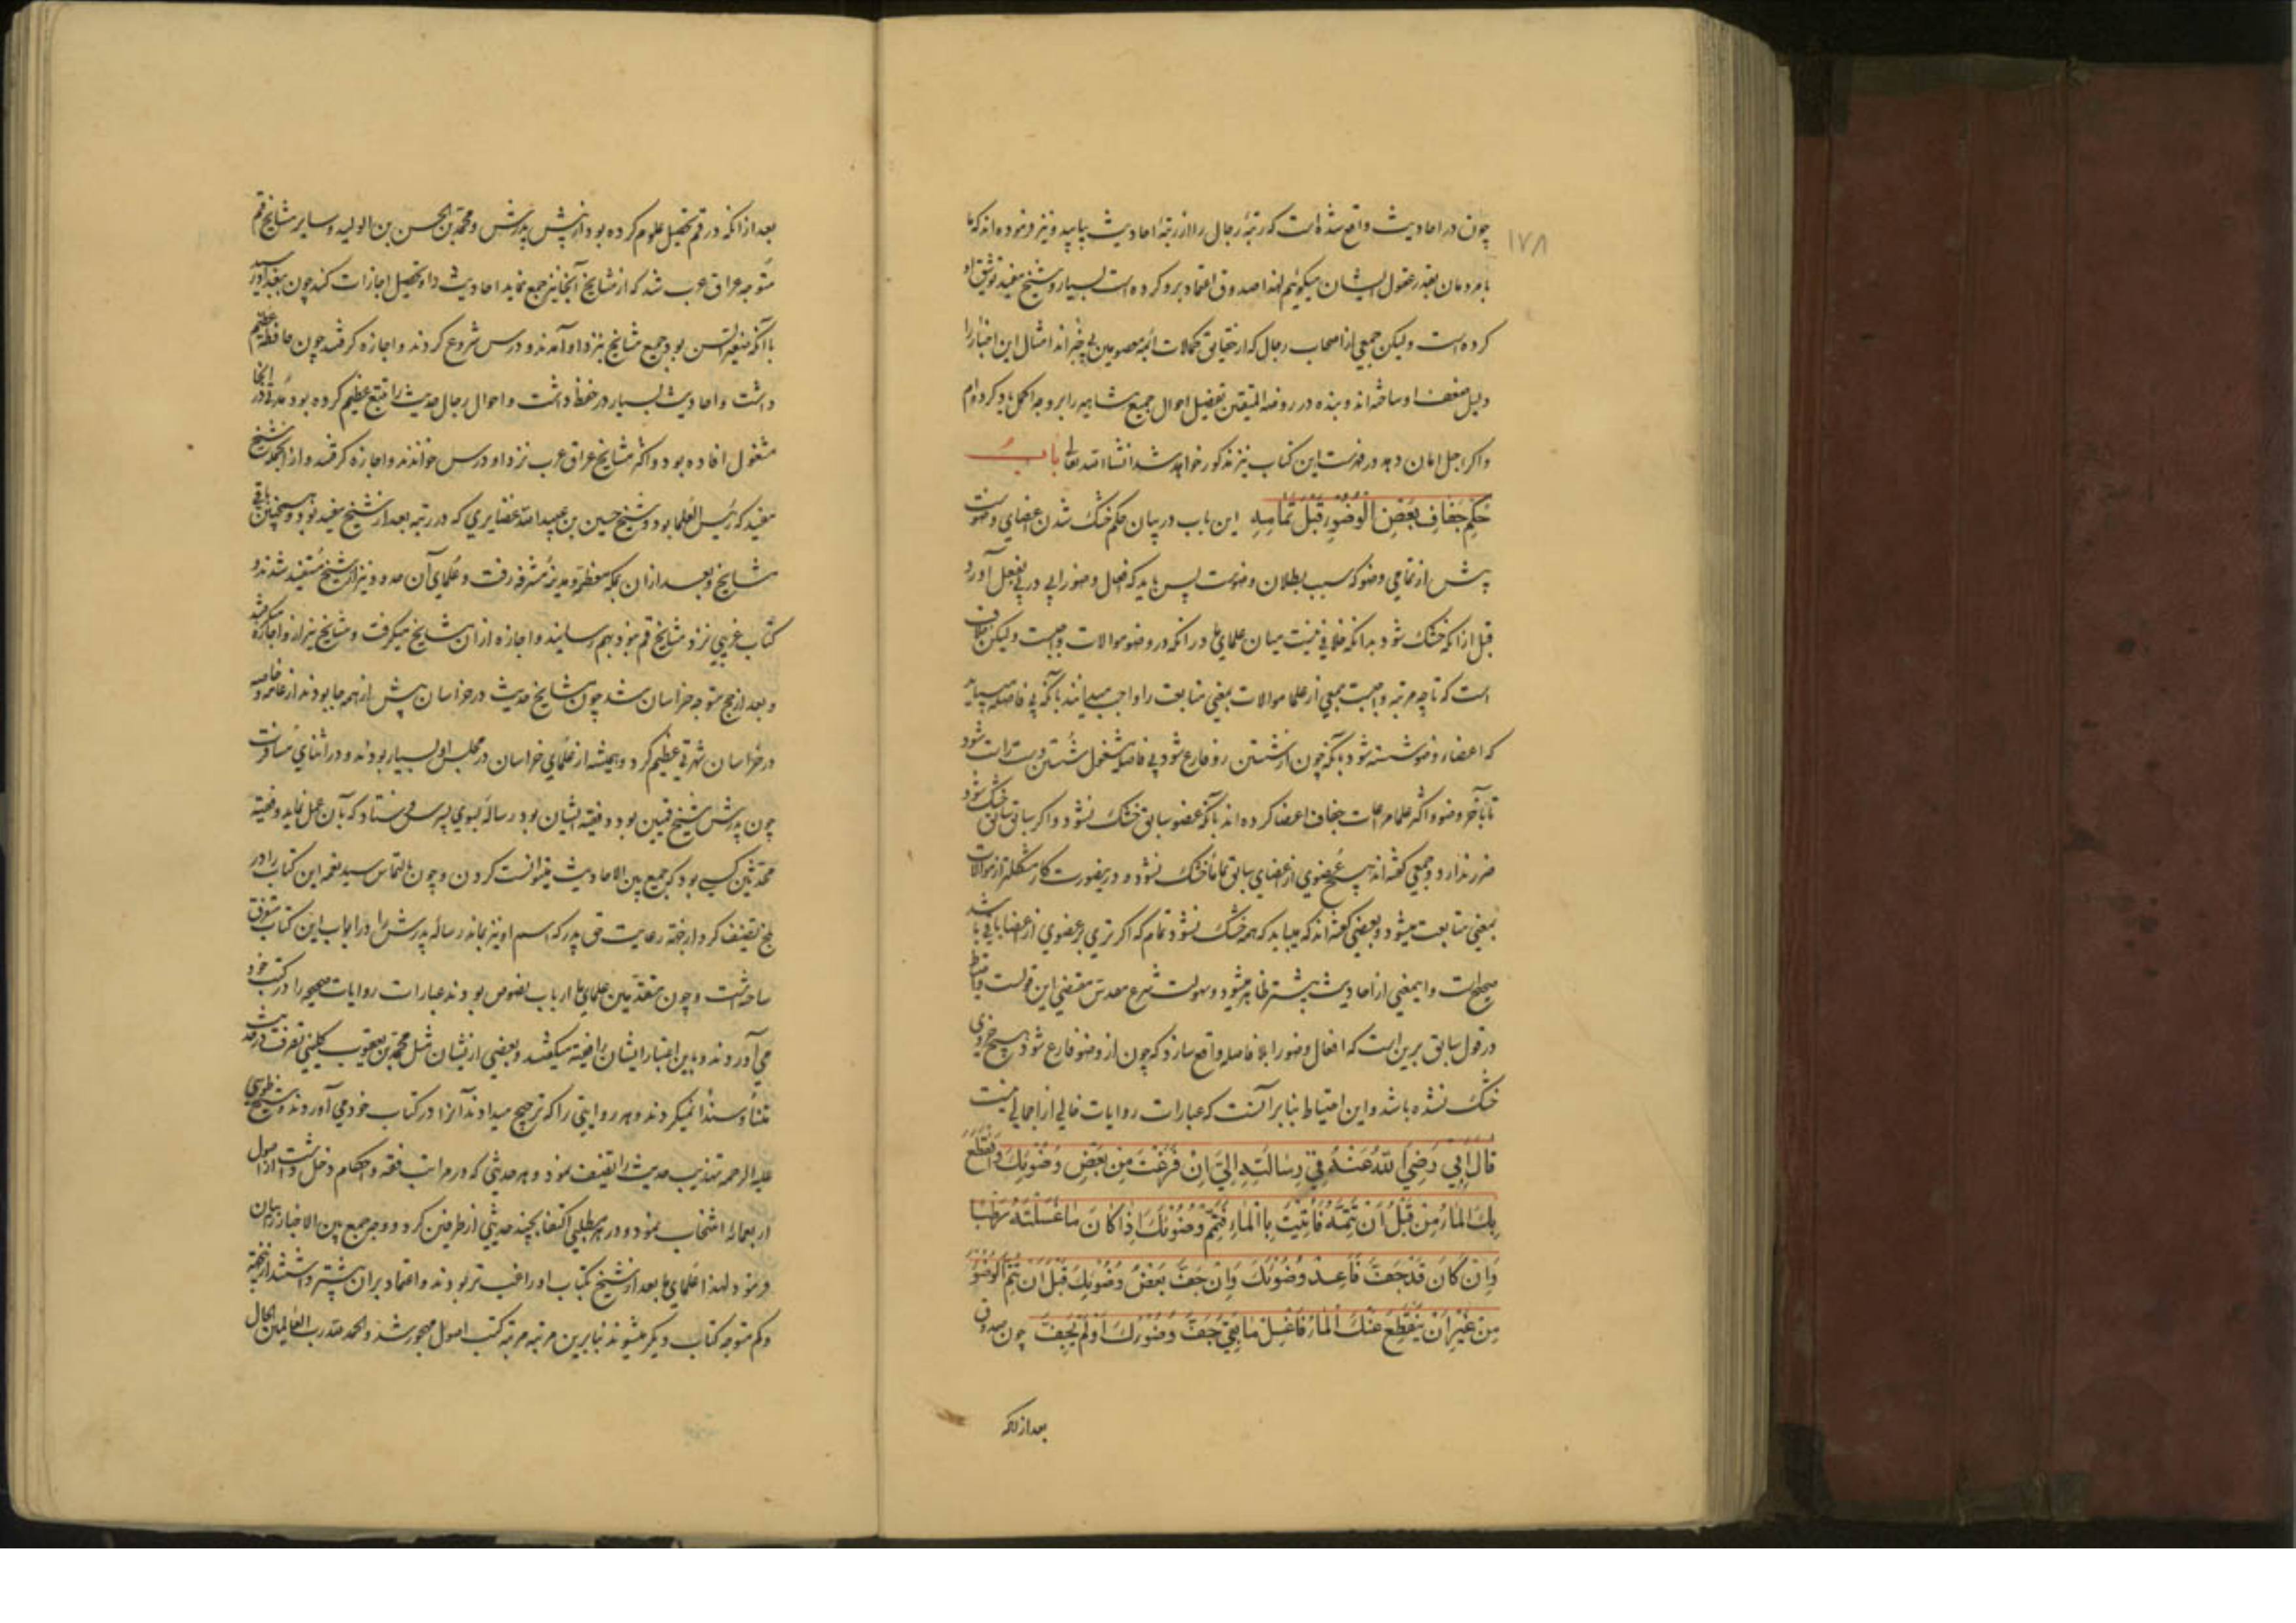 ۱۷۸
چون در احادیث واقع شده است که رتبهٔ رجال را از رتبهٔ احادیث بیابید و نیز فرموده‌اند که ما
با مردمان بقدر عقول ایشان میگوئیم لهذا صدوق اعتماد برو کرده است بسیار و شیخ مفید توثیق او
کرده است ولیکن جمعی از اصحاب رجال که از حقایق کمالات ائمه معصومین بی خبراند امثال این اخبار را
دلیل ضعف او ساخته‌اند و بنده در روضة المتقین تفصیل احوال جمیع مشاهیر را بر وجه اکمل یاد کرده‌ام
و اگر اجل امان دهد در فهرست این کتاب نیز مذکور خواهد شد انشاء الله تعالی باب
حُکمِ جَفافِ بَعضِ الوُضُوءِ قَبلَ تَمامِهِ این باب در بیان حکم خشک شدن اعضای وضوست
پیش از تمامی وضو که سبب بطلان وضوست پس باید که افعال وضو را پی در پی بفعل آورد
قبل از آنکه خشک شود بدانکه خلافی نیست میان علمای ما در آنکه در وضو موالات واجبست ولیکن خلاف
است که تا چه مرتبه واجبست جمعی از علما موالات بمعنی متابعت را واجب میدانند بآنکه بی فاصله میباید
که اعضاء وضو شسته شود بآنکه چون از شستن رو فارغ شود بی فاصله مشغول شستن دست راست شود
تا بآخر وضو و اکثر علما مراعات جفاف اعضا کرده‌اند بآنکه عضو سابق خشک نشود و اگر سابق سابق خشک شود
ضرر ندارد و جمعی گفته‌اند هیچ عضوی از اعضای سابق تماما خشک نشود و درینصورت کار مشکلتر از موالات
بمعنی متابعت میشود و بعضی گفته‌اند که میباید که همه خشک نشود تمام که اگر تری بر عضوی از اعضا باقی باشد
صحیح است و اینمعنی از احادیث بیشتر ظاهر میشود و سهولت شرع مقدس مقتضی این قولست و احتیاط
در قول سابق برین است که افعال وضو را بلا فاصله واقع سازد که چون از وضو فارغ شود هیچ جزوی
خشک نشده باشد و این احتیاط بنابر آنست که عبارات روایات خالی از اجمالی نیست
قالَ اَبی رَضِیَ اللهُ عَنهُ فی رِسالَتِهِ اِلَیَّ اِن فَرَغتَ مِن بَعضِ وُضُوئِکَ وَانقَطَعَ
بِکَ الماءُ مِن قَبلِ اَن تُتِمَّهُ فَاُتیتَ بِالماءِ فَتَمِّم وُضُوئَکَ اِذا کانَ ما غَسَلتَهُ رَطبًا
وَاِن کانَ قَد جَفَّ فَاَعِد وُضُوئَکَ وَاِن جَفَّ بَعضُ وُضُوئِکَ قَبلَ اَن تُتِمَّ الوُضُوءَ
مِن غَیرِ اَن یَنقَطِعَ عَنکَ الماءُ فَاغسِل ما بَقِیَ جَفَّ وُضُوءُکَ اَو لَم یَجِفَّ چون صدوق
بعد از آنکه
بعد از آنکه در قم تحصیل علوم کرده بود از پیش پدرش و محمد بن الحسن بن الولید و سایر مشایخ قم
متوجه عراق عرب شد که از مشایخ آنجا نیز جمع نماید احادیث را و تحصیل اجازات کند چون ببغداد رسید
با آنکه صغیر السن بود جمیع مشایخ بنزد او آمدند و درس شروع کردند و اجازه گرفتند چون حافظه عظیم
داشت و احادیث بسیار در حفظ داشت و احوال رجال حدیث را تتبع عظیم کرده بود مدتی در آنجا
مشغول افاده بود و اکثر مشایخ عراق عرب نزد او درس خواندند و اجازه گرفتند و از آنجمله شیخ
مفید که رئیس العلما بود و شیخ حسین بن عبید الله غضایری که در رتبه بعد از شیخ مفید بود و همچنین باقی
مشایخ و بعد از آن بمکه معظمه و مدینه مشرفه رفت و علمای آن حدود نیز از شیخ مستفید شدند و
کتاب غریبی نزد مشایخ قم نبود بهم میرسانید و اجازه از آن مشایخ میگرفت و مشایخ نیز ازو اجازه میگرفتند
و بعد از حج متوجه خراسان شد چون مشایخ حدیث در خراسان بیش از همه جا بودند از عامه و خاصه
در خراسان شهرتی عظیم کرد و همیشه از علمای خراسان در مجلس او بسیار بودند و در اثنای مسافرت
چون پدرش شیخ قمیین بود و فقیه ایشان بود رساله بسوی پسر می فرستاد که بآن عمل نماید و فقیه
محدثین کسی بود که جمع بین الاحادیث میتوانست کردن و چون بالتماس سید نعمه این کتاب را در
بلخ تصنیف کرد از جهة رعایت حق پدر که اسم او نیز بماند رسالهٔ پدرش را در ابواب این کتاب متفرق
ساخته است و چون متقدمین علمای ما ارباب نصوص بودند عبارات روایات صحیحه را در کتب خود
می آوردند و باین اعتبار ایشان را فقیه میگفتند و بعضی از ایشان مثل محمد بن یعقوب کلینی تصرف در حدیث
متنًا و سندًا نمیکردند و هر روایتی را که ترجیح میدادند آنرا در کتاب خود می آوردند و شیخ طوسی
علیه الرحمه تهذیب حدیث را تصنیف نمود و هر حدیثی که در مراتب فقه و احکام دخل داشت از اصول
اربعمائه انتخاب نمود و در هر مطلبی اکتفا بچند حدیثی از طرفین کرد و وجه جمع بین الاخبار را بیان
فرمود لهذا علمای ما بعد از شیخ بکتاب او راغب تر بودند و اعتماد بر آن بیشتر داشتند ازینجهة
و کم متوجه کتاب دیگر میشوند بنابرین مرتبه مرتبه کتب اصول مهجور شد و الحمد لله رب العالمین الحال